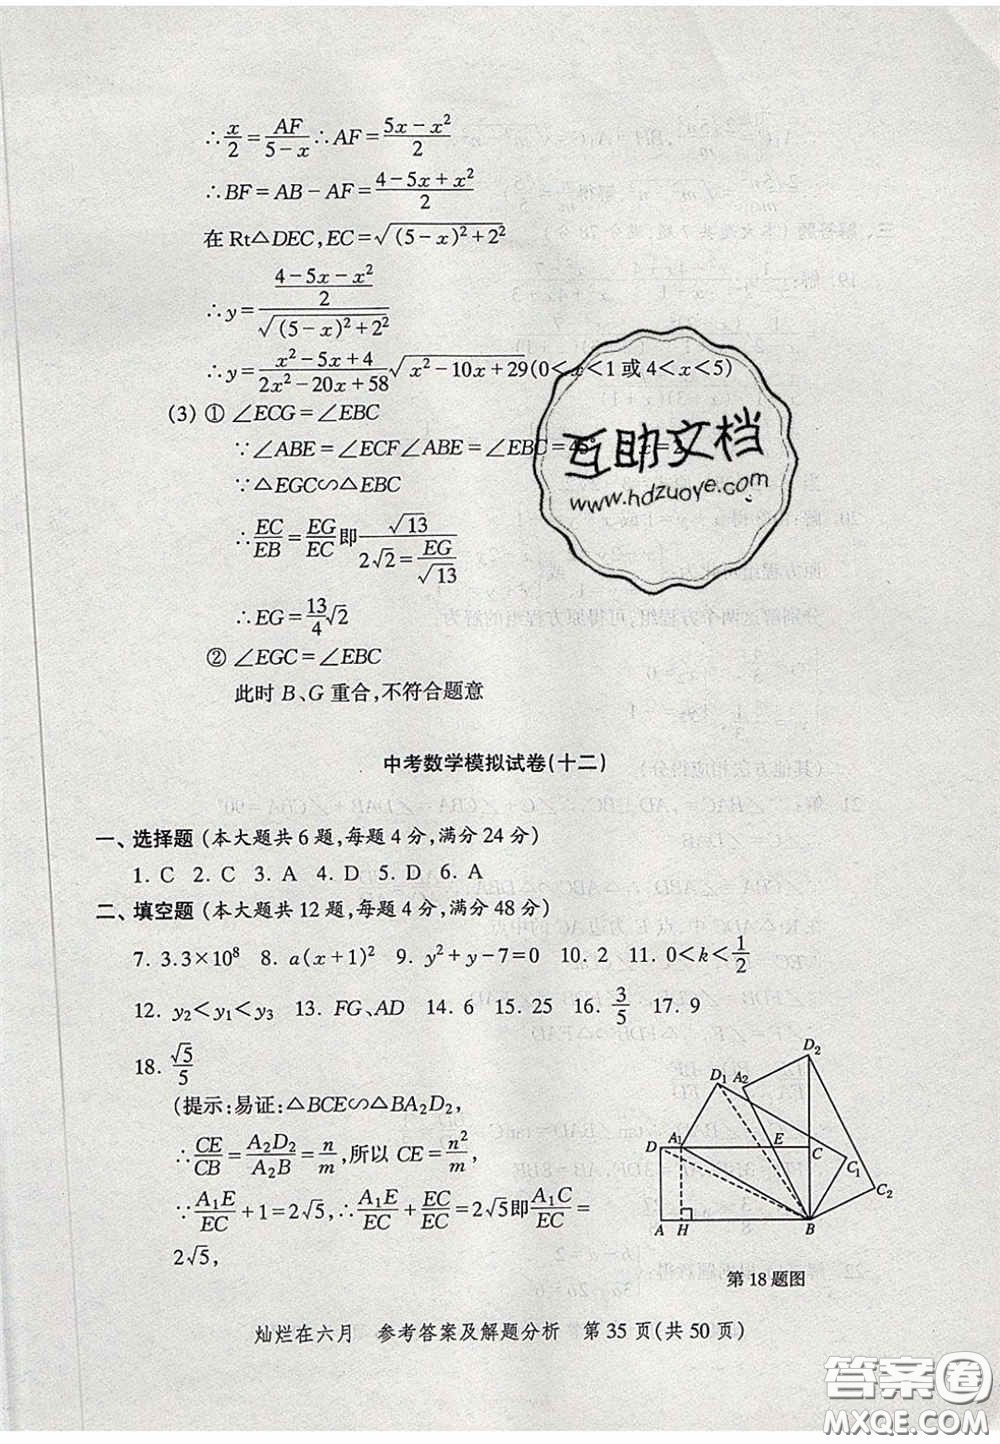 ∴x/2=AF/(5-x) ∴AF=(5x-x²)/2
∴BF=AB-AF=(4-5x+x²)/2
在Rt△DEC,EC=√((5-x)²+2²)
∴y=((4-5x-x²)/2)/√((5-x)²+2²)
∴y=(x²-5x+4)/(2x²-20x+58)√(x²-10x+29)(0<x<1或4<x<5)
(3) ① ∠ECG=∠EBC
∵∠ABE=∠ECF∠ABE=∠EBC=45°
∵△EGC∽△EBC
∴EC/EB=EG/EC即√13/(2√2=EG/√13)
∴EG=13/4√2
② ∠EGC=∠EBC
此时B、G重合,不符合题意
中考数学模拟试卷(十二)
一、选择题(本大题共6题,每题4分,满分24分)
1. C 2. C 3. A 4. D 5. D 6. A
二、填空题(本大题共12题,每题4分,满分48分)
7. 3.3×10⁸ 8. a(x+1)² 9. y²+y-7=0 10. 2 11. 0<k<1/2
12. y₂<y₁<y₃ 13. FG、AD 14. 6 15. 25 16. 3/5 17. 9
18. √5/5
(提示:易证:△BCE∽△BA₂D₂,
∴CE/CB=A₂D₂/A₂B=n/m,所以CE=n²/m,
∵A₁E/EC+1=2√5,∴A₁E/EC+EC/EC=2√5即A₁C/EC=
2√5,
D₂
D₁ A₂
D A₁ E C
C₁
C₂
A H B
第18题图
灿烂在六月 参考答案及解题分析 第35页(共50页)
互助文档
www.hdzuoye.com
答案圈
MXQE.COM